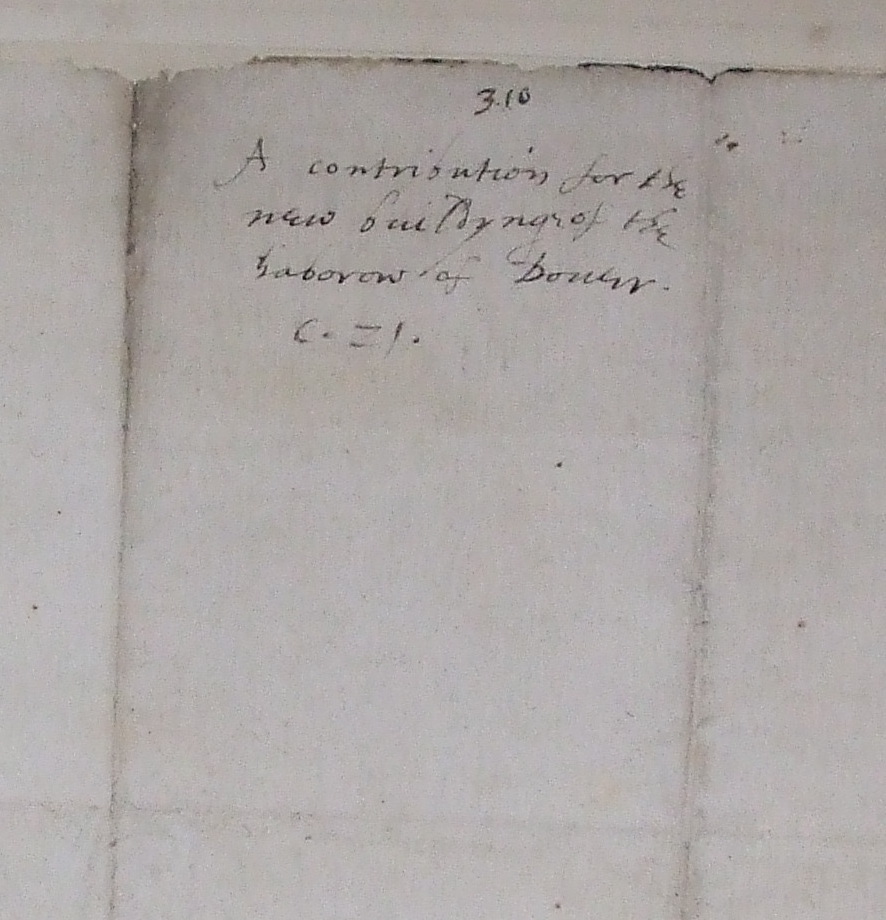 3.10
A contribution for the
new buildyng of the
haborow of Douer.
C. Z1.